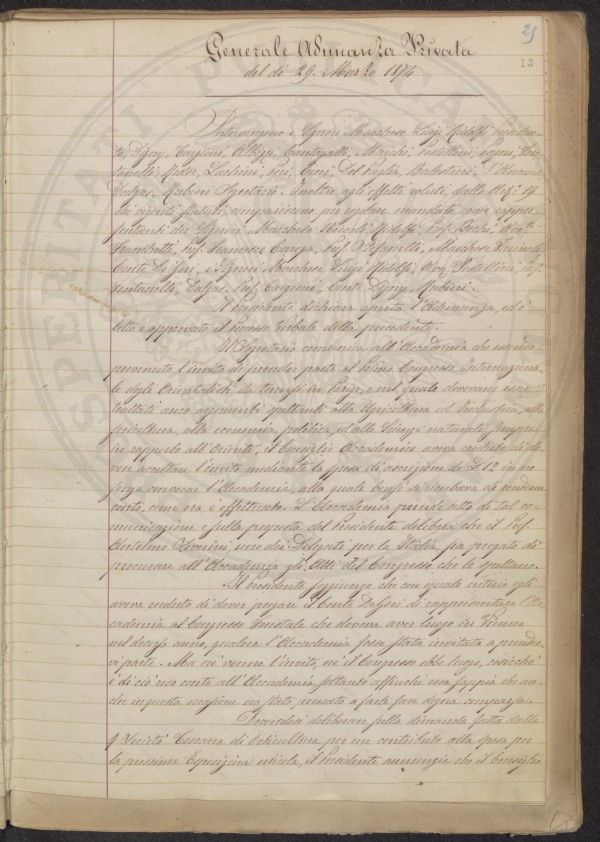 25
13
Generale Adunanza Privata
del dì 29. Marzo 1874
Intervengono i Signori Marchese Luigi Ridolfi Presiden-
te, Digny, Cantagalli, Marchi, Pestellini,
Luchini, Del Puglia,
Dalgas, Rubieri Segretario. Inoltre agli effetti voluti dallo Art. 14
dei vigenti Statuti compariscono per cedere mandato come rappre-
sentanti dei Signori Marchese Niccolò Ridolfi, Prof.
Franchetti, Prof. Francesco Carega, Prof. Stefanelli, Marchese
Conte De i Signori Marchese Luigi Ridolfi, Avv. Pestellini, Prof.
Fontanelli, Dalgas, Prof. Conte Digny, Rubieri.
Il Presidente dichiara aperta l'Adunanza, ed è
letto e approvato il Processo Verbale della precedente.
Il Segretario comunica all'Accademia che essendo
pervenuto l'invito di prender parte al Primo Congresso Internaziona-
le degli Orientalisti da tenersi in Parigi, e nel quale dovevano esser
trattati anco argomenti spettanti alla Agricoltura ed Industria, alla
alla economia politica, ed alle Scienze naturali, sempre
in rapporto all'Oriente, il Consiglio Accademico aveva creduto di do-
vere accettare l'invito mediante la spesa di associazione di L. 12 in
senza convocare l'Accademia, alla quale bensì si riserbava da renderne
conto, come ora è effettuato. L'Accademia prende atto di tal co-
municazione e sulla proposta del Presidente delibera che il Prof.
Antelmo Severini uno dei Delegati per la Italia, sia pregato di
procurare all'Accademia gli Atti del Congresso che le spettano.
Il Presidente soggiunge che con eguale criterio egli
aveva creduto di dover pregare il Conte di rappresentare l'Ac-
cademia al Congresso Forestale che doveva aver luogo in Vienna
nel decorso anno, qualora l'Accademia fosse stata invitata a prender-
vi parte. Ma nè venne l'invito, nè il Congresso ebbe luogo, cosicchè
è di ciò reso conto all'Accademia soltanto affinchè essa sappia che an-
che in questa occasione era stato pensato a farle fare degna comparsa.
Dovendosi deliberare sulla domanda fatta dalla
R. Società Toscana di Orticultura per un contributo alla spesa per
la prossima Esposizione orticola, il Presidente annunzia che il Consiglio